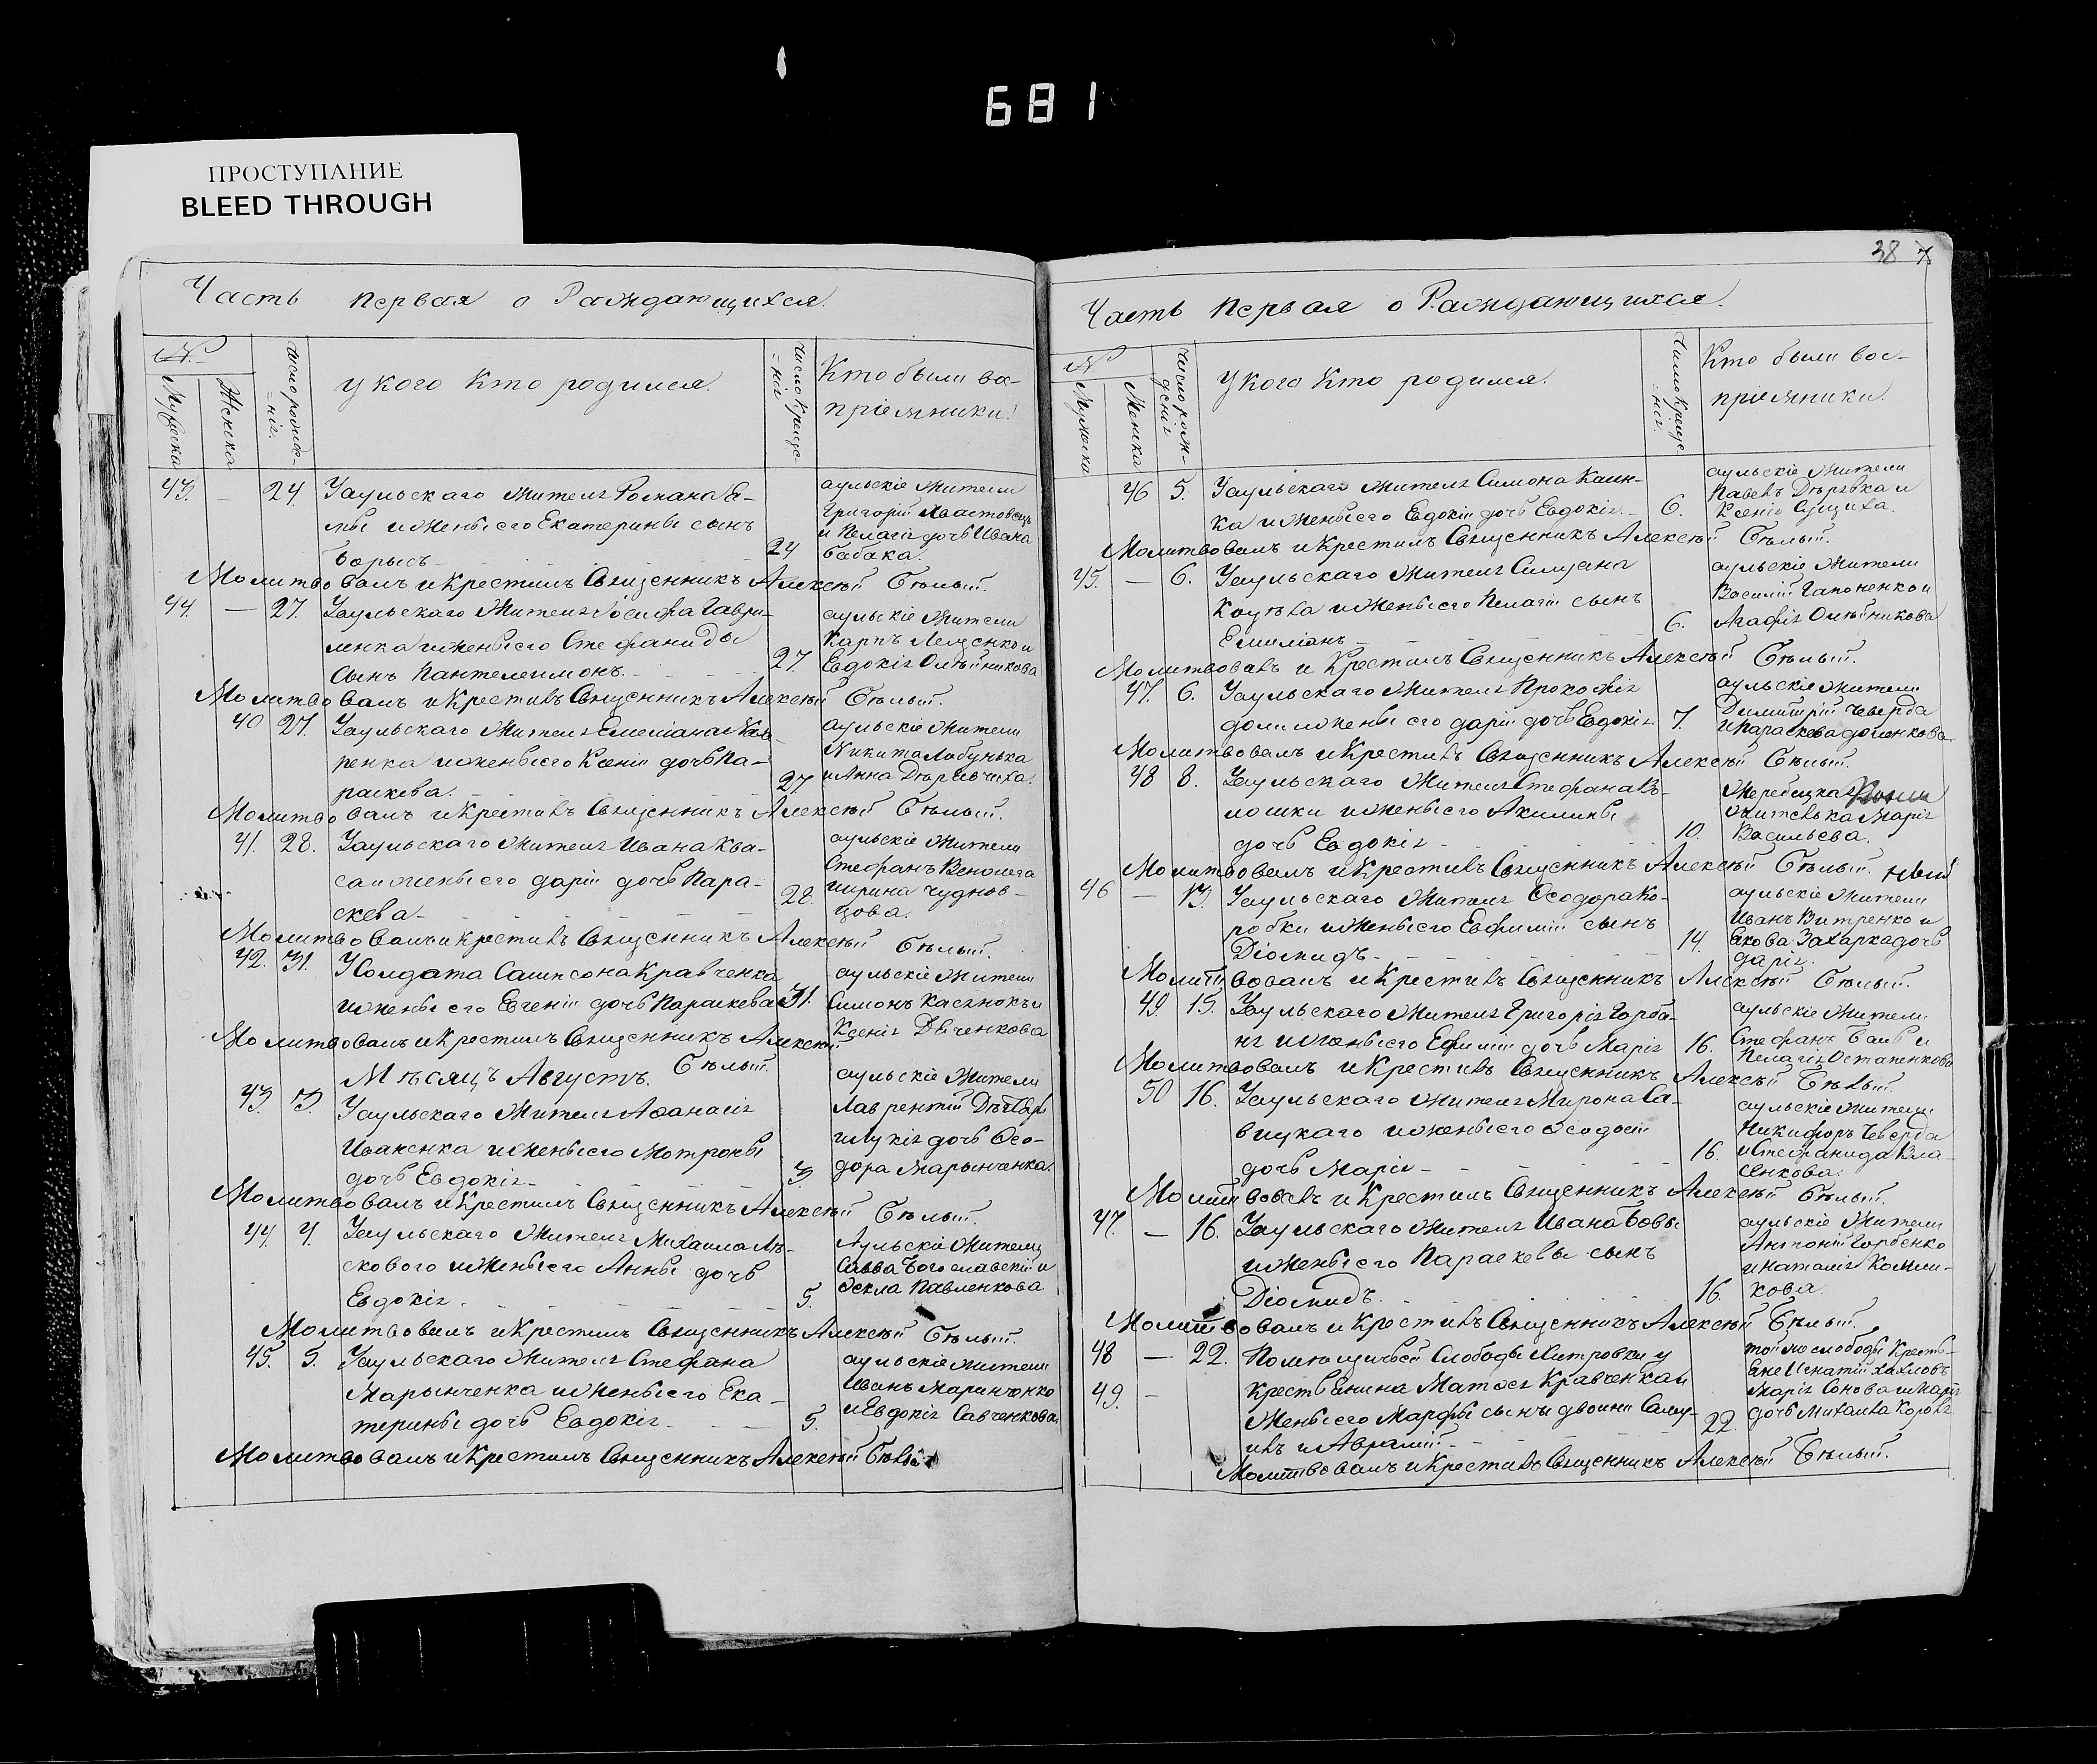 681
ПРОСТУПАНИЕ
BLEED THROUGH
Часть первая о Раждающихся.
№
Мужеска
Женска
число рожде-
-нія.
у кого кто родился.
число креще-
-нія
Кто были во-
пріемники.
43. — 24. У аульскаго жителя Романа
и жены его Екатерины сынъ
Борысъ
24
аульскіе жители
Григорій
и Пелагія дочь Ивана
Бабака.
Молитвовалъ и крестилъ Священникъ Алексѣй Бѣлый.
44. — 27. У аульскаго жителя Іосифа Гаври-
ленка и жены его Стефаниды
сынъ Пантелеимонъ.
27.
аульскіе жители
Карпъ Лещенко и
Евдокія Олѣйникова
Молитвовалъ и крестилъ Священникъ Алексѣй Бѣлый.
40 27. У аульскаго жителя Емеліана
ренка и жены его Ксеніи дочь Па-
раскева.
27
аульскіе жители
Никита Лобунька
и Анна
Молитвовалъ и крестилъ Священникъ Алексѣй Бѣлый.
41. 28. У аульскаго жителя Ивана Ква-
са и жены его Даріи дочь Пара-
скева
28.
аульскіе жители
Стефанъ
и Ирина Чуднов-
цова.
Молитвовалъ и крестилъ Священникъ Алексѣй Бѣлый.
42. 31. У Солдата Сампсона Кравченка
и жены его Евгеніи дочь Параскева 31.
аульскіе жители
Симонъ Касянокъ и
Ксенія
Молитвовалъ и крестилъ Священникъ Алексѣй
Бѣлый.
Мѣсяцъ Августъ.
43. 3. У аульскаго жителя Аѳанасія
Иваненка и жены его Мотроны
дочь Евдокія
3
аульскіе жители
Лаврентій
и Лукія дочь Ѳео-
дора Марынченка
Молитвовалъ и крестилъ Священникъ Алексѣй Бѣлый.
44. 4. У аульскаго жителя Михаила Лѣ-
скового и жены его Анны дочь
Евдокія
5.
Аульскіе жители
Савва Богославскій и
Ѳекла Павленкова
Молитвовалъ и крестилъ Священникъ Алексѣй Бѣлый.
45. 5. У аульскаго жителя Стефана
Марынченка и жены его Ека-
терины дочь Евдокія
5.
аульскіе жители
Иванъ Маринченко
и Евдокія Савченкова
Молитвовалъ и крестилъ Священникъ Алексѣй Бѣлый
38
Часть первая о Раждающихся.
№
Мужеска
Женска
Число рож-
денія
у кого кто родился.
Число креще-
-нія.
Кто были вос-
пріемники.
46 5. У аульскаго жителя Симона Каши-
ка и жены его Евдокіи дочь Евдокія.
6.
аульскіе жители
Павелъ и
Ксенія
Молитвовалъ и крестилъ Священникъ Алексѣй Бѣлый.
45. — 6. У аульскаго жителя
и жены его Пелагіи сынъ
Емиліанъ
6.
аульскіе жители
Василій Гапоненко и
Агафія Олѣйникова
Молитвовалъ и крестилъ Священникъ Алексѣй Бѣлый.
47. 6. У аульскаго жителя Прокофія
и жены его Даріи дочь Евдокія
7.
аульскіе жители
Димитрій Чеверда
и Параскева
Молитвовалъ и крестилъ Священникъ Алексѣй Бѣлый.
48 8. У аульскаго жителя Стефана
лошки и жены его Акилины
дочь Евдокія
10.
жителька Марія
Васильева.
Молитвовалъ и крестилъ Священникъ Алексѣй Бѣлый.
46 — 13. У аульскаго жителя Ѳеодора Ко-
робки и жены его Евфиміи сынъ
Діомидъ
14.
аульскіе жители
Иванъ Витренко и
Якова Захарка дочь
Дарія.
Молитвовалъ и крестилъ Священникъ Алексѣй Бѣлый.
49. 15. У аульскаго жителя Григорія Горба-
ня и жены его Ефиміи дочь Марія
16.
аульскіе жители
Стефанъ и
Пелагія Остапенкова
Молитвовалъ и крестилъ Священникъ Алексѣй Бѣлый
50 16. У аульскаго жителя Мирона Са-
вицкаго и жены его Ѳеодосіи
дочь Марія
16.
аульскіе жители
Никифоръ Чеверда
и Стефанида Вла-
сенкова.
Молитвовалъ и крестилъ Священникъ Алексѣй Бѣлый.
47. — 16. У аульскаго жителя Ивана Бовы
и жены его Параскевы сынъ
Діомидъ
16.
аульскіе жители
Антоній Горбенко
и Наталія Комли-
кова.
Молитвовалъ и крестилъ Священникъ Алексѣй Бѣлый.
48 — 22. Помѣщичьей Слободы Хитровки у
49. — крестьянина Матѳея Кравченка и
жены его Марфы сыны двойни Саму-
илъ и Аврамій
22.
той же слободы Кресть-
яне Игнатій Хахловъ
Марія и Марія
дочь Михаила
Молитвовалъ и крестилъ Священникъ Алексѣй Бѣлый.